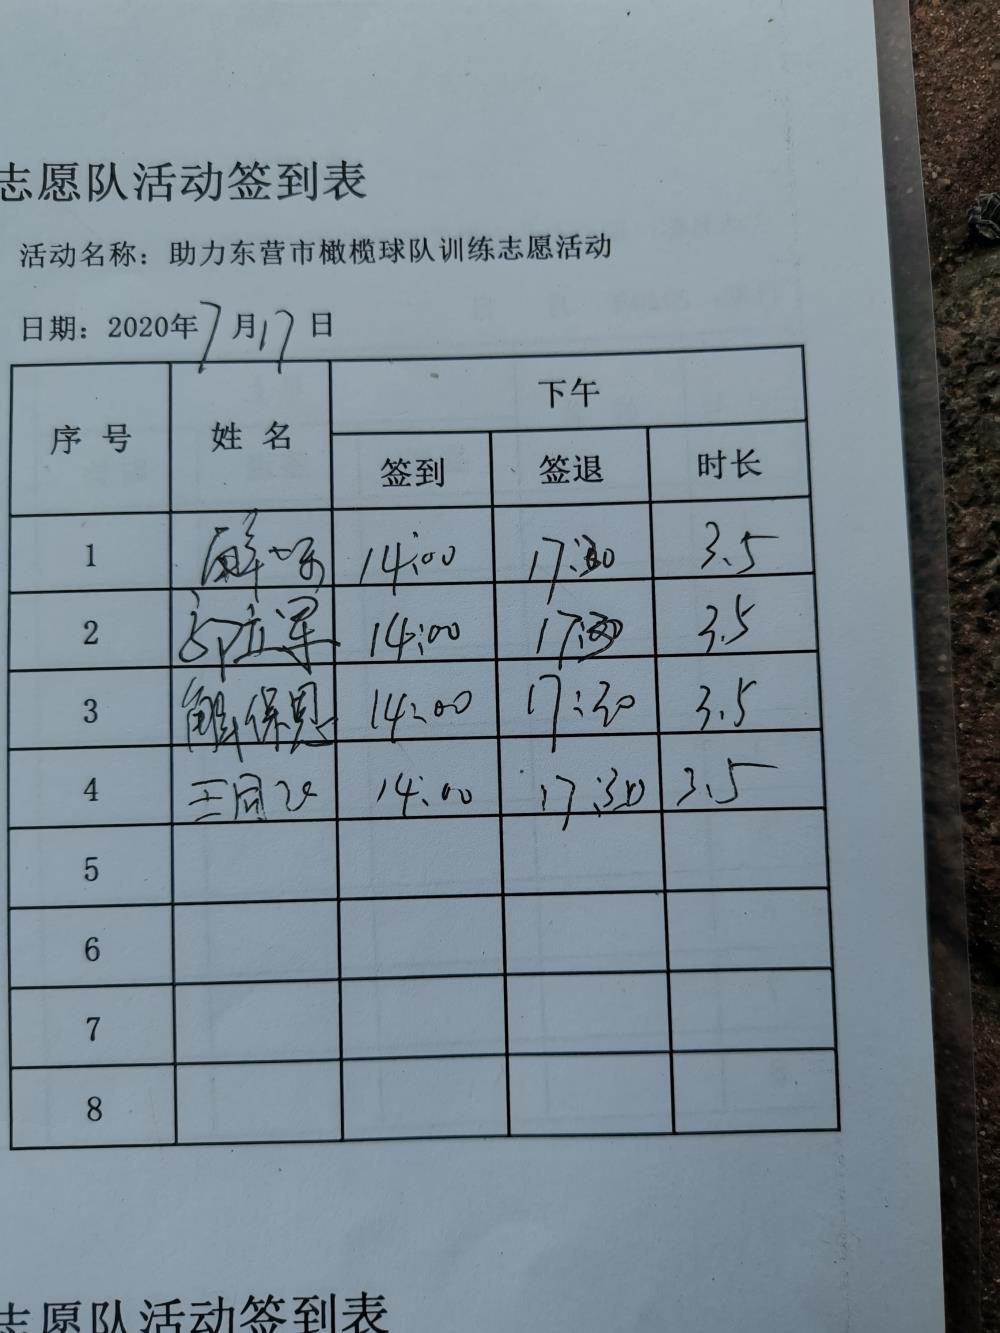 志愿队活动签到表
活动名称：助力东营市橄榄球队训练志愿活动
日期：2020年7月17日
序号 姓名 下午
签到 签退 时长
1 14:00 17:30 3.5
2 14:00 17:30 3.5
3 解保恩 14:00 17:30 3.5
4 14:00 17:30 3.5
5
6
7
8
志愿队活动签到表